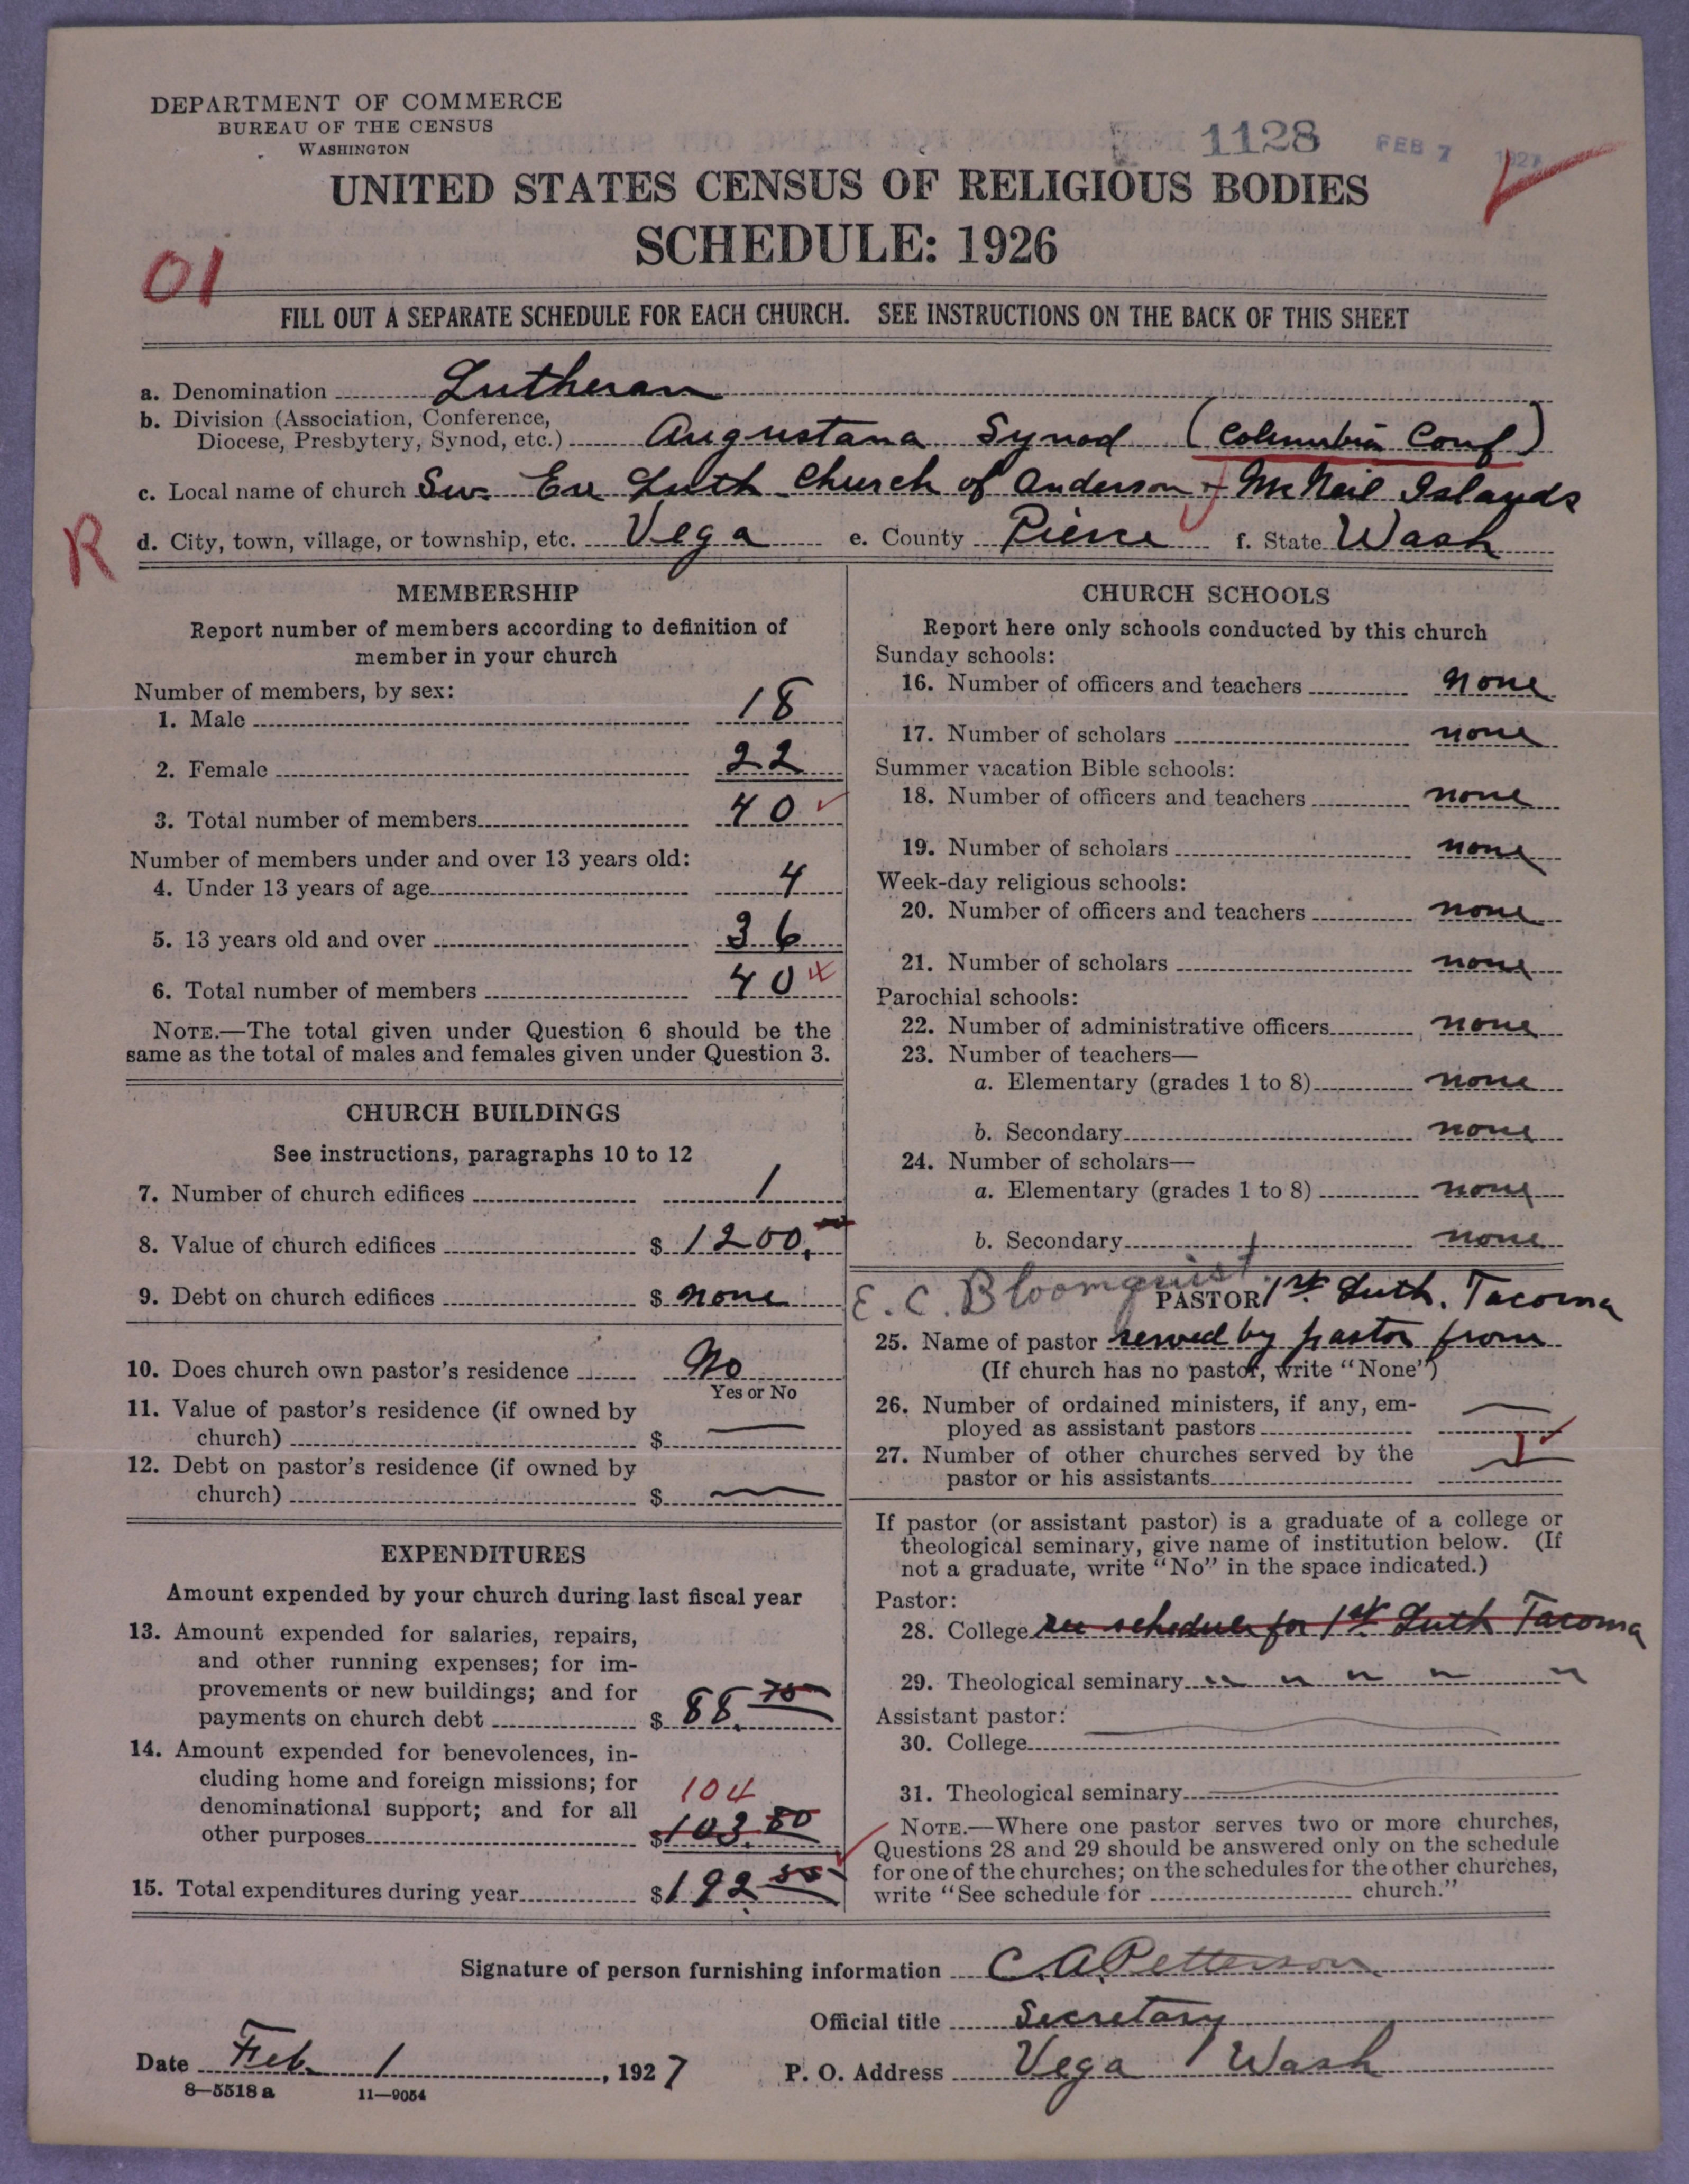 DEPARTMENT OF COMMERCE
BUREAU OF THE CENSUS
WASHINGTON
1128
FEB 7 1927
UNITED STATES CENSUS OF RELIGIOUS BODIES
SCHEDULE: 1926
01
FILL OUT A SEPARATE SCHEDULE FOR EACH CHURCH. SEE INSTRUCTIONS ON THE BACK OF THIS SHEET
a. Denomination Lutheran
b. Division (Association, Conference,
Diocese, Presbytery, Synod, etc.) Augustana Synod (Columbia Conf)
c. Local name of church Sw. Ev Luth Church of Anderson + McNeil Islands
R
d. City, town, village, or township, etc. Vega e. County Pierce f. State Wash
MEMBERSHIP
Report number of members according to definition of
member in your church
Number of members, by sex:
1. Male 18
2. Female 22
3. Total number of members 40
Number of members under and over 13 years old:
4. Under 13 years of age 4
5. 13 years old and over 36
6. Total number of members 40
NOTE.—The total given under Question 6 should be the
same as the total of males and females given under Question 3.
CHURCH BUILDINGS
See instructions, paragraphs 10 to 12
7. Number of church edifices 1
8. Value of church edifices $ 1200.
9. Debt on church edifices $ none
10. Does church own pastor's residence No
Yes or No
11. Value of pastor's residence (if owned by
church) $ —
12. Debt on pastor's residence (if owned by
church) $ —
EXPENDITURES
Amount expended by your church during last fiscal year
13. Amount expended for salaries, repairs,
and other running expenses; for im-
provements or new buildings; and for
payments on church debt $ 88. 75
14. Amount expended for benevolences, in-
cluding home and foreign missions; for
denominational support; and for all 104
other purposes $103.80
15. Total expenditures during year $192 55
CHURCH SCHOOLS
Report here only schools conducted by this church
Sunday schools:
16. Number of officers and teachers none
17. Number of scholars none
Summer vacation Bible schools:
18. Number of officers and teachers none
19. Number of scholars none
Week-day religious schools:
20. Number of officers and teachers none
21. Number of scholars none
Parochial schools:
22. Number of administrative officers none
23. Number of teachers—
a. Elementary (grades 1 to 8) none
b. Secondary none
24. Number of scholars—
a. Elementary (grades 1 to 8) none
b. Secondary none
E. C. Bloomquist.
PASTOR 1st. Luth. Tacoma
25. Name of pastor served by pastor from
(If church has no pastor, write "None")
26. Number of ordained ministers, if any, em-
ployed as assistant pastors —
27. Number of other churches served by the
pastor or his assistants 1
If pastor (or assistant pastor) is a graduate of a college or
theological seminary, give name of institution below. (If
not a graduate, write "No" in the space indicated.)
Pastor:
28. College see schedule for 1st Luth Tacoma
29. Theological seminary " " " " "
Assistant pastor:
30. College
31. Theological seminary
NOTE.—Where one pastor serves two or more churches,
Questions 28 and 29 should be answered only on the schedule
for one of the churches; on the schedules for the other churches,
write "See schedule for church."
Signature of person furnishing information C. A. Petterson
Official title Secretary
Date Feb. 1, 1927 P. O. Address Vega Wash
8—5518 a 11—9054